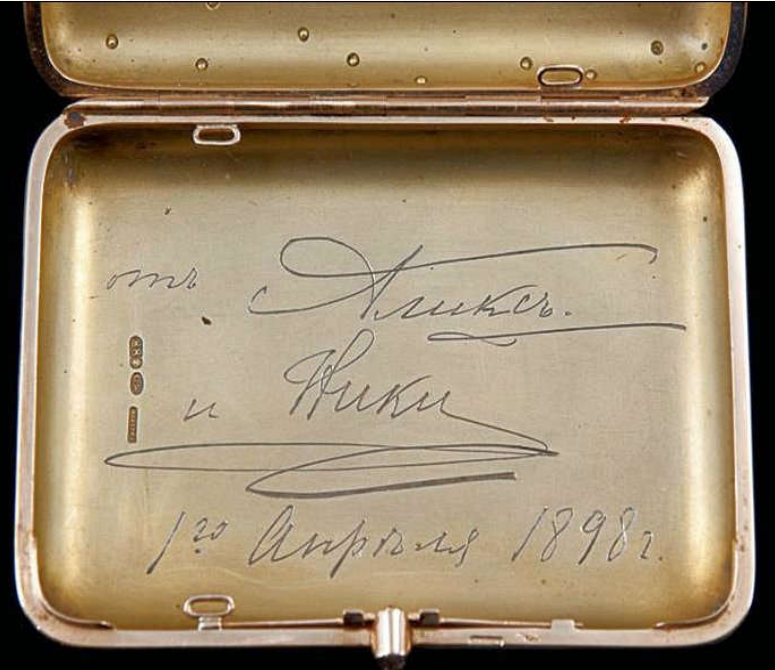 отъ Аликсъ.
и Ники
1го Апрѣля 1898 г.